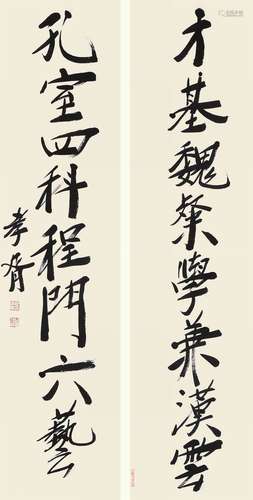 才基魏粲學兼漢雲
孔室四科程門六藝
孝胥